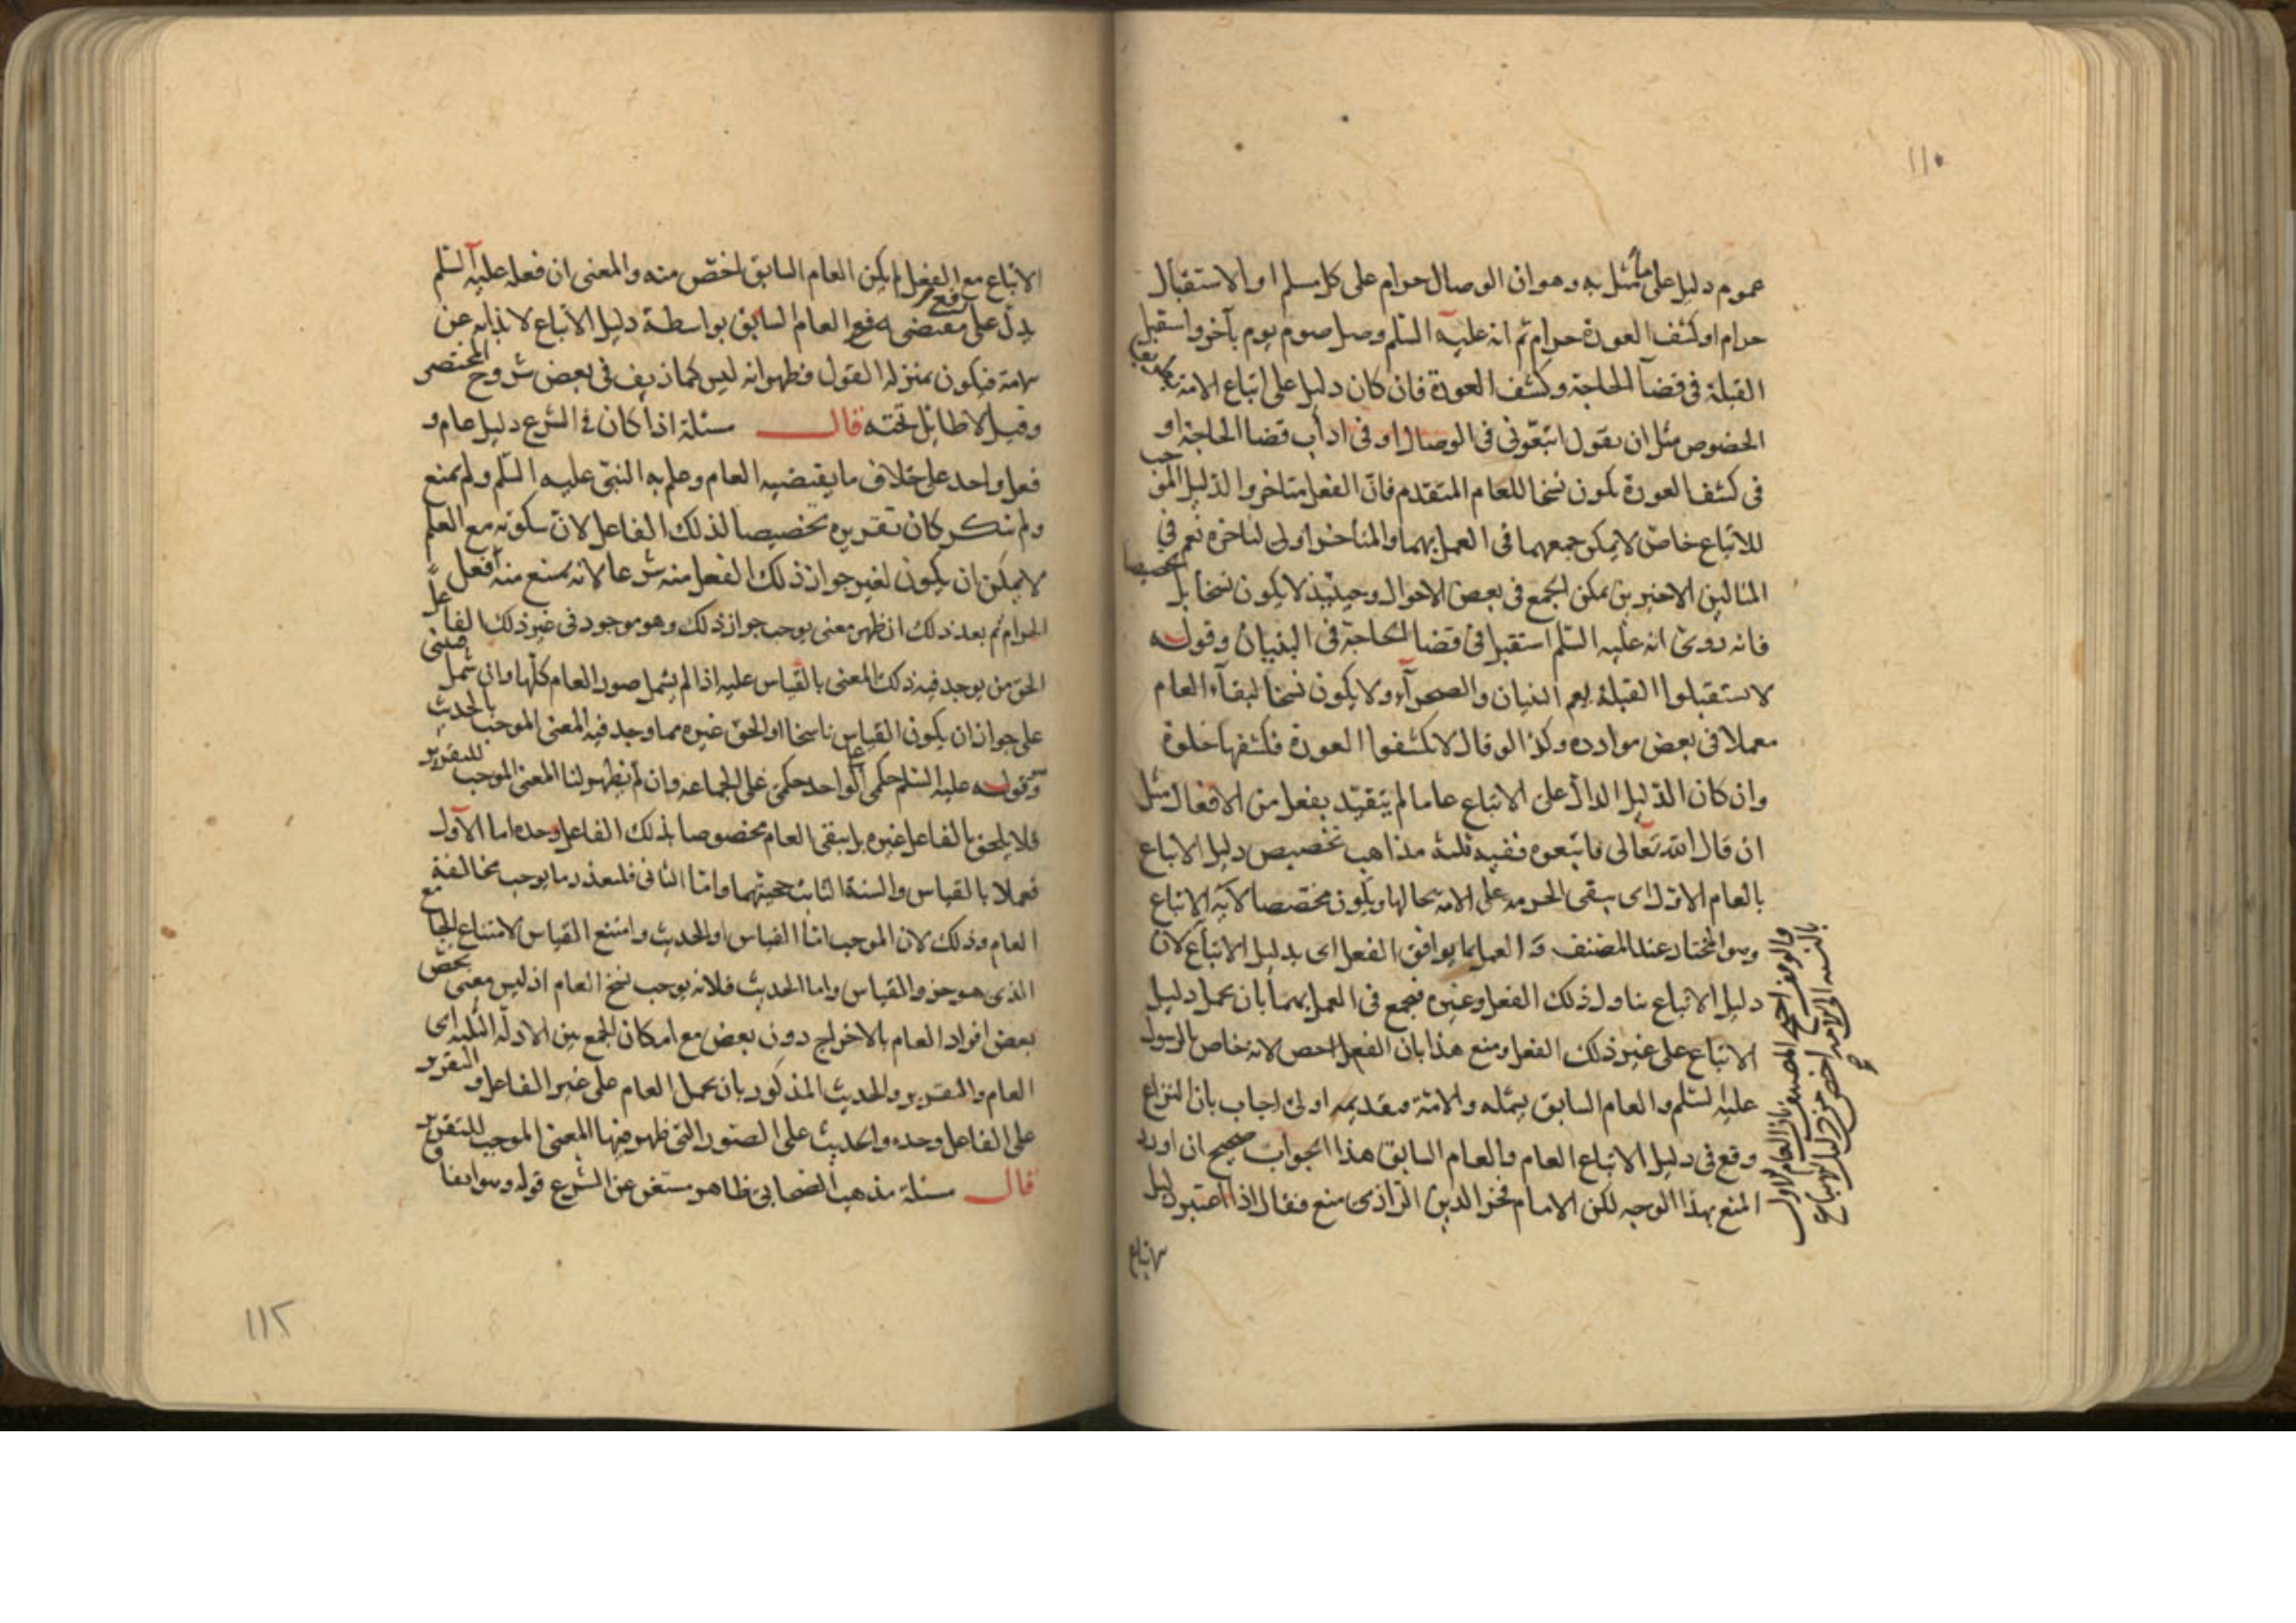 ١١٠
عموم دليل على ما مثل به وهو ان الوصال حرام على كل مسلم او الاستقبال
حرام او كشف العورة حرام ثم انه عليه السلم وصل صوم يوم بآخر واستقبل
القبلة فى قضآ الحاجة وكشف العورة فان كان دليل على اتباع الامة
الخصوص مثل ان يقول اتبعونى فى الوصال او فى اداب قضا الحاجة او
فى كشف العورة يكون نسخا للعام المتقدم فان الفعل متاخر والدليل الموجب
للاتباع خاص لا يمكن جمعهما فى العمل بهما والمتاخر اولى لتاخره نعم في
المثالين الاخيرين يمكن الجمع فى بعض الاحوال وحينئذ لا يكون نسخا بل تخصيصا
فانه روى انه عليه السلم استقبل فى قضا الحاجة فى البنيان وقوله
لا تستقبلوا القبلة يعم البنيان والصحرآء ولا يكون نسخا لبقآء العام
معملا فى بعض موارده وكذا لو قال لا تكشفوا العورة فكشفها خلوة
وان كان الدليل الدال على الاتباع عاما لم يتقيد بفعل من الافعال مثل
ان قال الله تعالى فاتبعوه ففيه ثلثة مذاهب تخصيص دليل الاتباع
بالعام الاول اى يبقى الحرمة على الامة بحالها ويكون مخصصا لآية الاتباع
وهو المختار عند المصنف العمل بما يوافق الفعل اى بدليل الاتباع لان
دليل الاتباع يتناول ذلك الفعل وغيره فيجمع فى العمل بهما بان يحمل دليل
الاتباع على غير ذلك الفعل ومنع هذا بان الفعل اخص لانه خاص بالرسول
عليه السلم والعام السابق يشمله والامة فتقديمه اولى اجاب بان النزاع
وقع فى دليل الاتباع العام والعام السابق هذا الجواب صحيح ان اورد
المنع بهذا الوجه لكن الامام فخر الدين الرازى منع فقال اذا اعتبر دليل
والوقف احتج المصنف بان العام الاول
بالنسبة الى الامة اخص من دليل الاتباع
الاتباع
الاتباع مع الفعل لم يكن العام السابق اخص منه والمعنى ان فعله عليه السلم
يدل على مقتضى رفع العام السابق بواسطة دليل الاتباع لا بذاته عن
الامة فيكون بمنزلة القول فظهر انه ليس كما زيف فى بعض شروح المختصر
وقيل لا طائل تحته قال مسئلة اذا كان في الشرع دليل عام و
فعل واحد على خلاف ما يقتضيه العام وعلم به النبى عليه السلم ولم يمنع
ولم ينكر كان تقريره تخصيصا لذلك الفاعل لان سكوته مع العلم
لا يمكن ان يكون لغير جواز ذلك الفعل منه شرعا لانه يمتنع منه فعل
الحرام ثم بعد ذلك ان ظهر معنى يوجب جواز ذلك وهو موجود فى غير ذلك الفاعل
الحق من يوجد فيه ذلك المعنى بالقياس عليه اذا لم يشمل صور العام كلها وان شمل
على جواز ان يكون القياس ناسخا او الحق غيره مما وجد فيه المعنى الموجب بالحديث
وهو قوله عليه السلم حكمى على الواحد حكمى على الجماعة وان لم يظهر لنا المعنى الموجب للتقرير
فلا يلحق بالفاعل غيره بل يبقى العام مخصوصا بذلك الفاعل وحده اما الاول
فعملا بالقياس والسنة الثابت حجيتهما واما الثانى فلتعذر ما يوجب مخالفة
العام وذلك لان الموجب اما القياس او الحديث وامتنع القياس لامتناع الجامع
الذى هو جزو القياس واما الحديث فلانه يوجب نسخ العام اذ ليس معنى يخص
بعض افراد العام بالاخراج دون بعض مع امكان الجمع بين الادلة الثلثة اى
العام والتقرير والحديث المذكور بان يحمل العام على غير الفاعل والتقرير
على الفاعل وحده والحديث على الصور التى ظهر فيها المعنى الموجب للتقرير
قال مسئلة مذهب الصحابى ظاهر مستغن عن الشرع قوله
١١٢